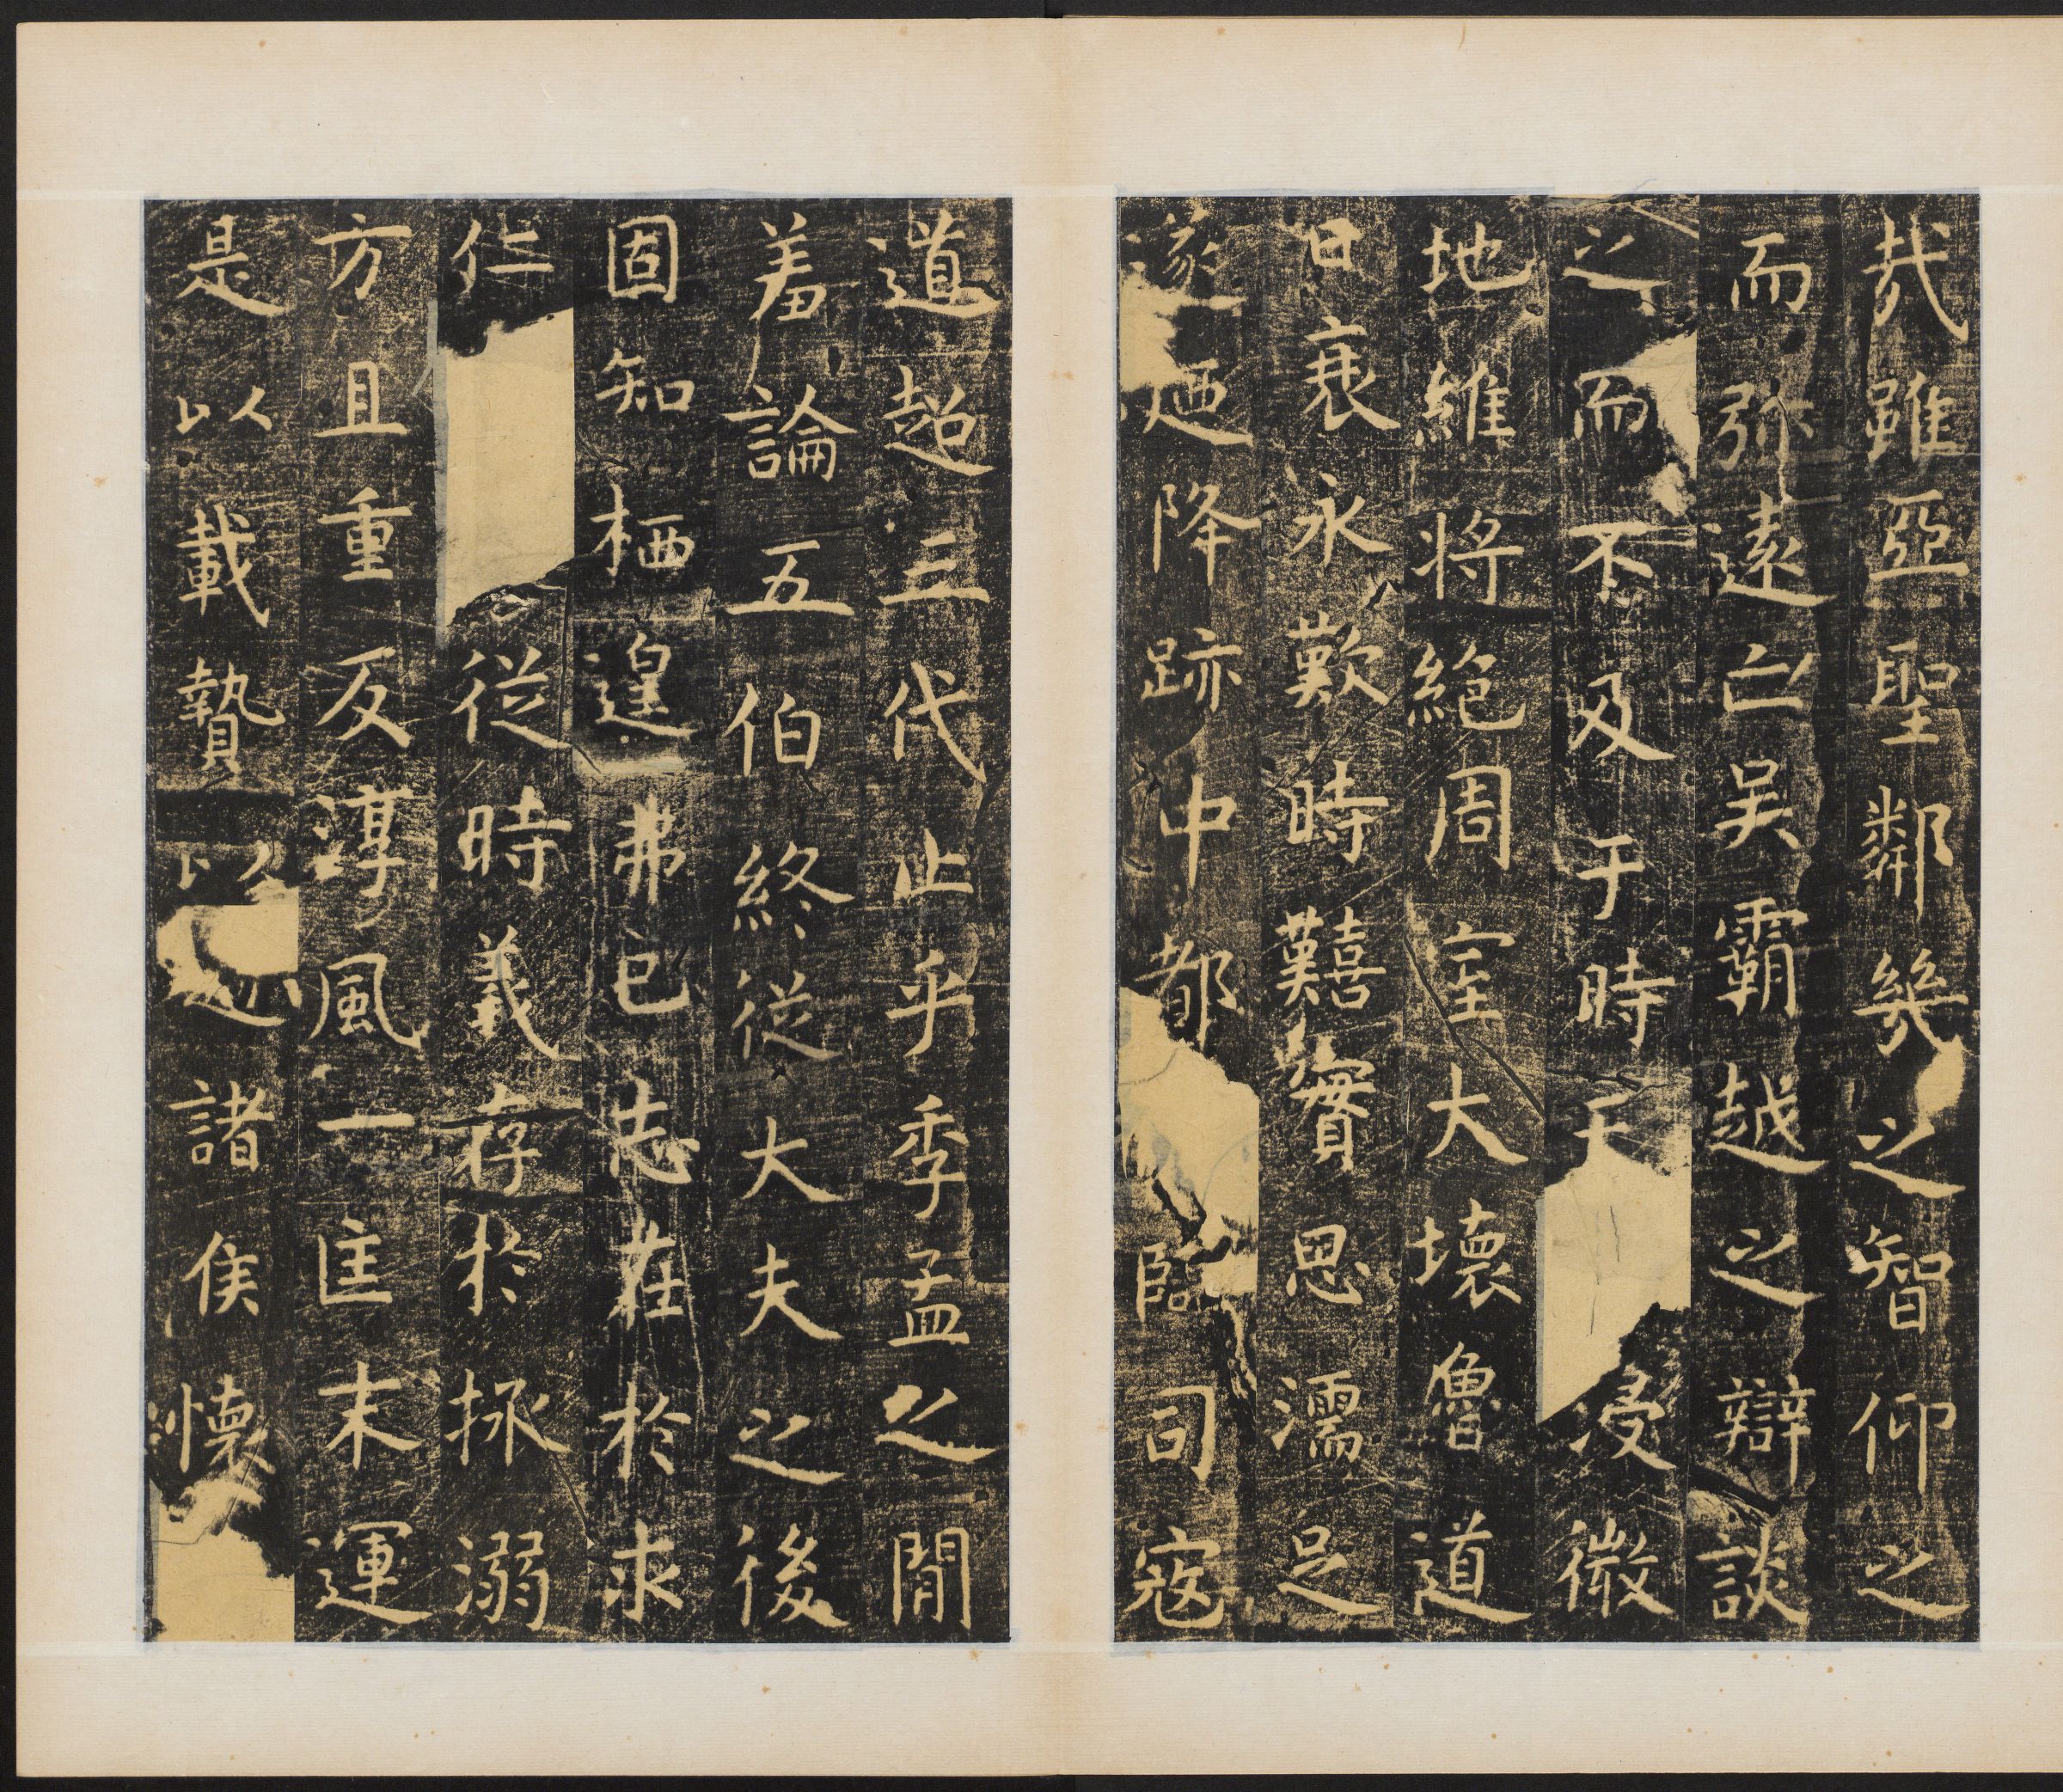 哉雖亞聖鄰幾之智仰之
而弥遠亡吳霸越之辯談
之而不及于時天浸微
地維将絶周室大壞魯道
日衰永歎時囏實思濡足
遂迺降跡中都臨司寇
道超三代止乎季孟之閒
羞論五伯終従大夫之後
固知栖遑弗已志在於求
仁従時義存於拯溺
方且重反淳風一匡末運
是以載贄以之諸侯懷